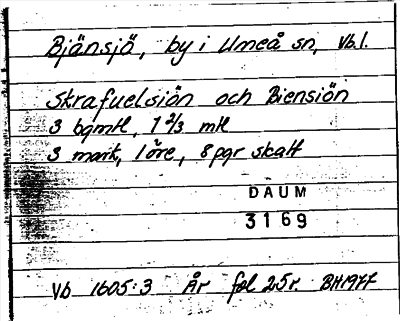 Bjänsjö, by i Umeå sn, Vb.l.
Skrafuelsiön och Biensiön
3 bgmtl, 1 2/3 mtl
3 mark, 1 öre, 8 pgr skatt
DAUM
3169
Vb 1605:3 År fol 25r. BH1977